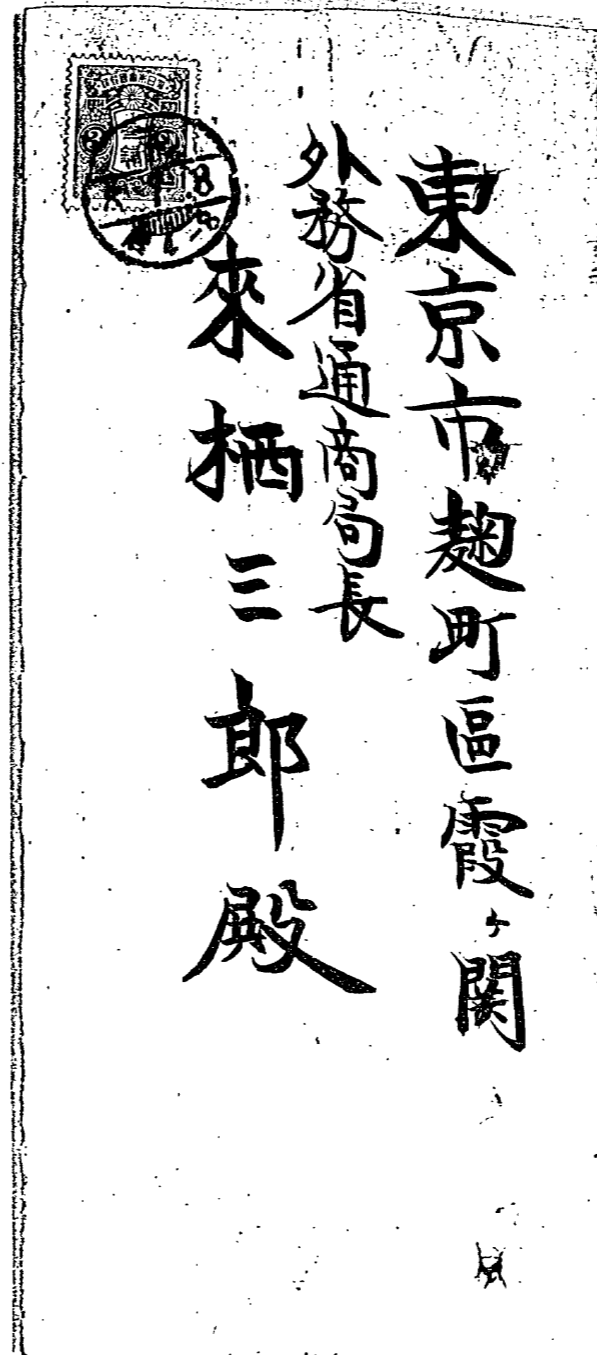 東京市麹町區霞ヶ関
外務省通商局長
來栖三郎殿